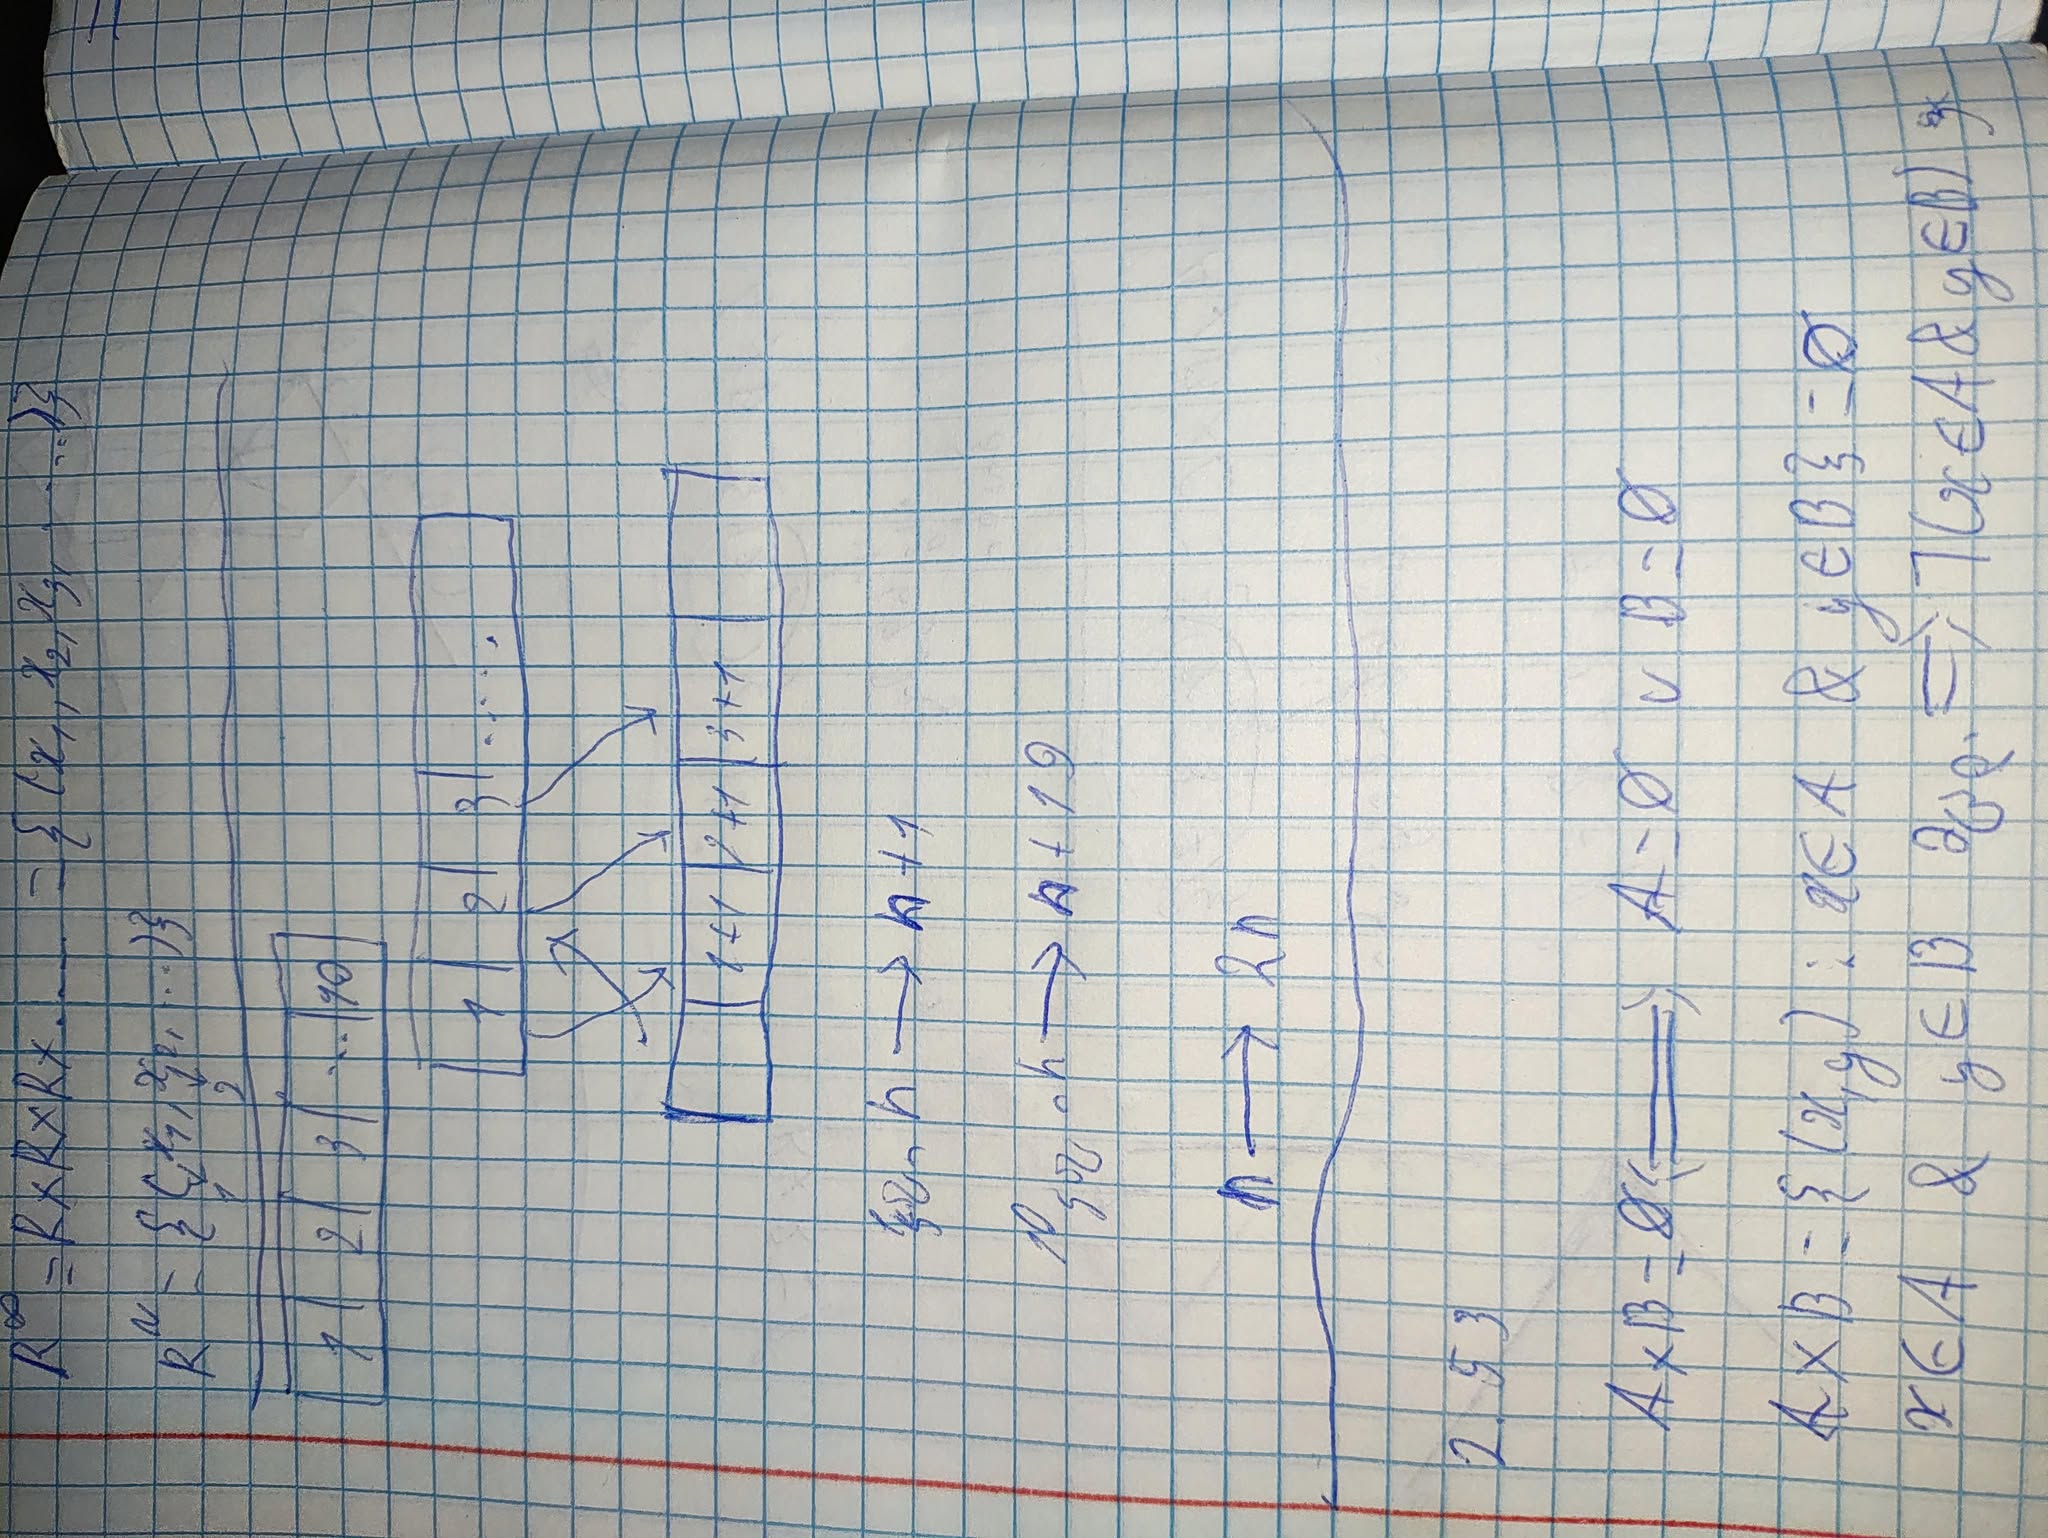 R^∞ = R×R×R×R×..... = {(x₁, x₂, x₃, .....)}
R^N = {(x₁, x₂, ...)}
1 2
1 | 2 | 3 | ... | 10
1 | 2 | 3 | .....
1+1 | 2+1 | 3+1
n → n+1
n → n+19
n → 2n
2.53
A×B=∅ ⟺ A=∅ ∨ B=∅
A×B={(x,y): x∈A & y∈B}=∅
x∈A & y∈B ⟺ ¬(x∈A & y∈B)